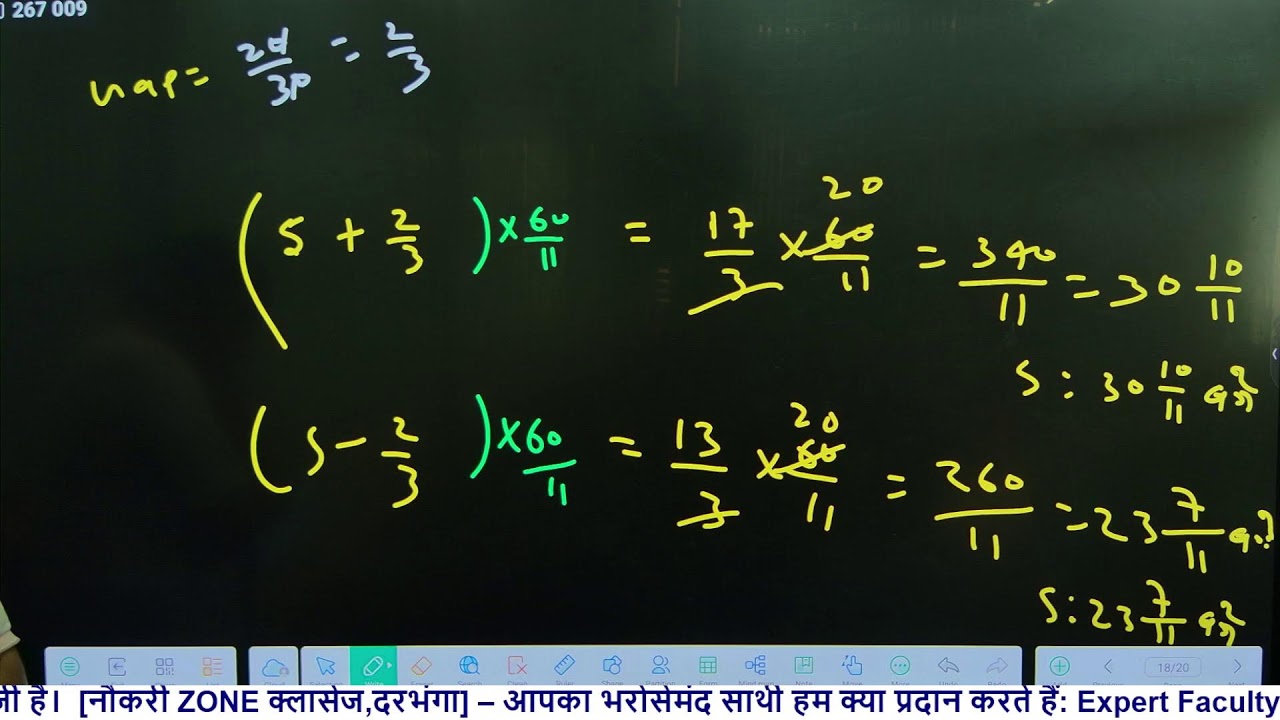 267 009
gap = 20/30 = 2/3
20
(5 + 2/3) × 60/11 = 17/3 × 60/11 = 340/11 = 30 10/11
5 : 30 10/11 बजे
20
(5 - 2/3) × 60/11 = 13/3 × 60/11 = 260/11 = 23 7/11
5 : 23 7/11 बजे
18/20
जी हैं। [नौकरी ZONE क्लासेज,दरभंगा] – आपका भरोसेमंद साथी हम क्या प्रदान करते हैं: Expert Faculty